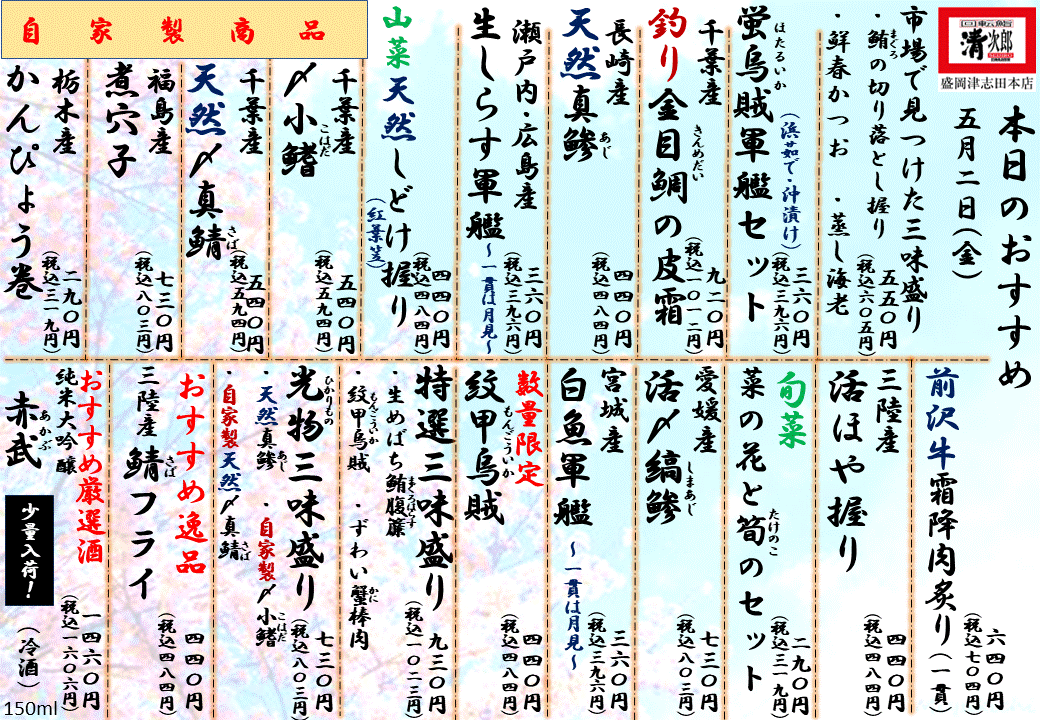 回転鮨
清次郎
盛岡津志田本店
本日のおすすめ
五月二日(金)
市場で見つけた三味盛り
・鮪の切り落とし握り
まぐろ
・鮮春かつお ・蒸し海老
五五〇円
(税込六〇五円)
蛍烏賊軍艦セット
ほたるいか
(浜茹で・沖漬け)
三六〇円
(税込三九六円)
千葉産
釣り金目鯛の皮霜
きんめだい
九二〇円
(税込一〇一二円)
長崎産
天然真鯵
あじ
四四〇円
(税込四八四円)
瀬戸内・広島産
生しらす軍艦
~一貫は月見~
三六〇円
(税込三九六円)
山菜
天然しどけ握り
(紅葉笠)
四四〇円
(税込四八四円)
自家製商品
千葉産
〆小鰭
こはだ
五四〇円
(税込五九四円)
千葉産
天然〆真鯖
さば
五四〇円
(税込五九四円)
福島産
煮穴子
七三〇円
(税込八〇三円)
栃木産
かんぴょう巻
二九〇円
(税込三一九円)
前沢牛霜降肉炙り(一貫)
六四〇円
(税込七〇四円)
三陸産
活ほや握り
四四〇円
(税込四八四円)
旬菜
菜の花と筍のセット
たけのこ
二九〇円
(税込三一九円)
愛媛産
活〆縞鯵
しまあじ
七三〇円
(税込八〇三円)
宮城産
白魚軍艦
~一貫は月見~
三六〇円
(税込三九六円)
数量限定
紋甲烏賊
もんごういか
四四〇円
(税込四八四円)
特選三味盛り
・生めばち鮪腹簾
まぐろはらす
・紋甲烏賊 ・ずわい蟹棒肉
もんごういか かに
九三〇円
(税込一〇二三円)
光物三味盛り
ひかりもの
・天然真鯵 ・自家製〆小鰭
あじ こはだ
・自家製天然〆真鯖
さば
七三〇円
(税込八〇三円)
おすすめ逸品
三陸産
鯖フライ
さば
四四〇円
(税込四八四円)
おすすめ厳選酒
純米大吟醸
赤武
あかぶ
少量入荷!
(冷酒)
一四六〇円
(税込一六〇六円)
150ml